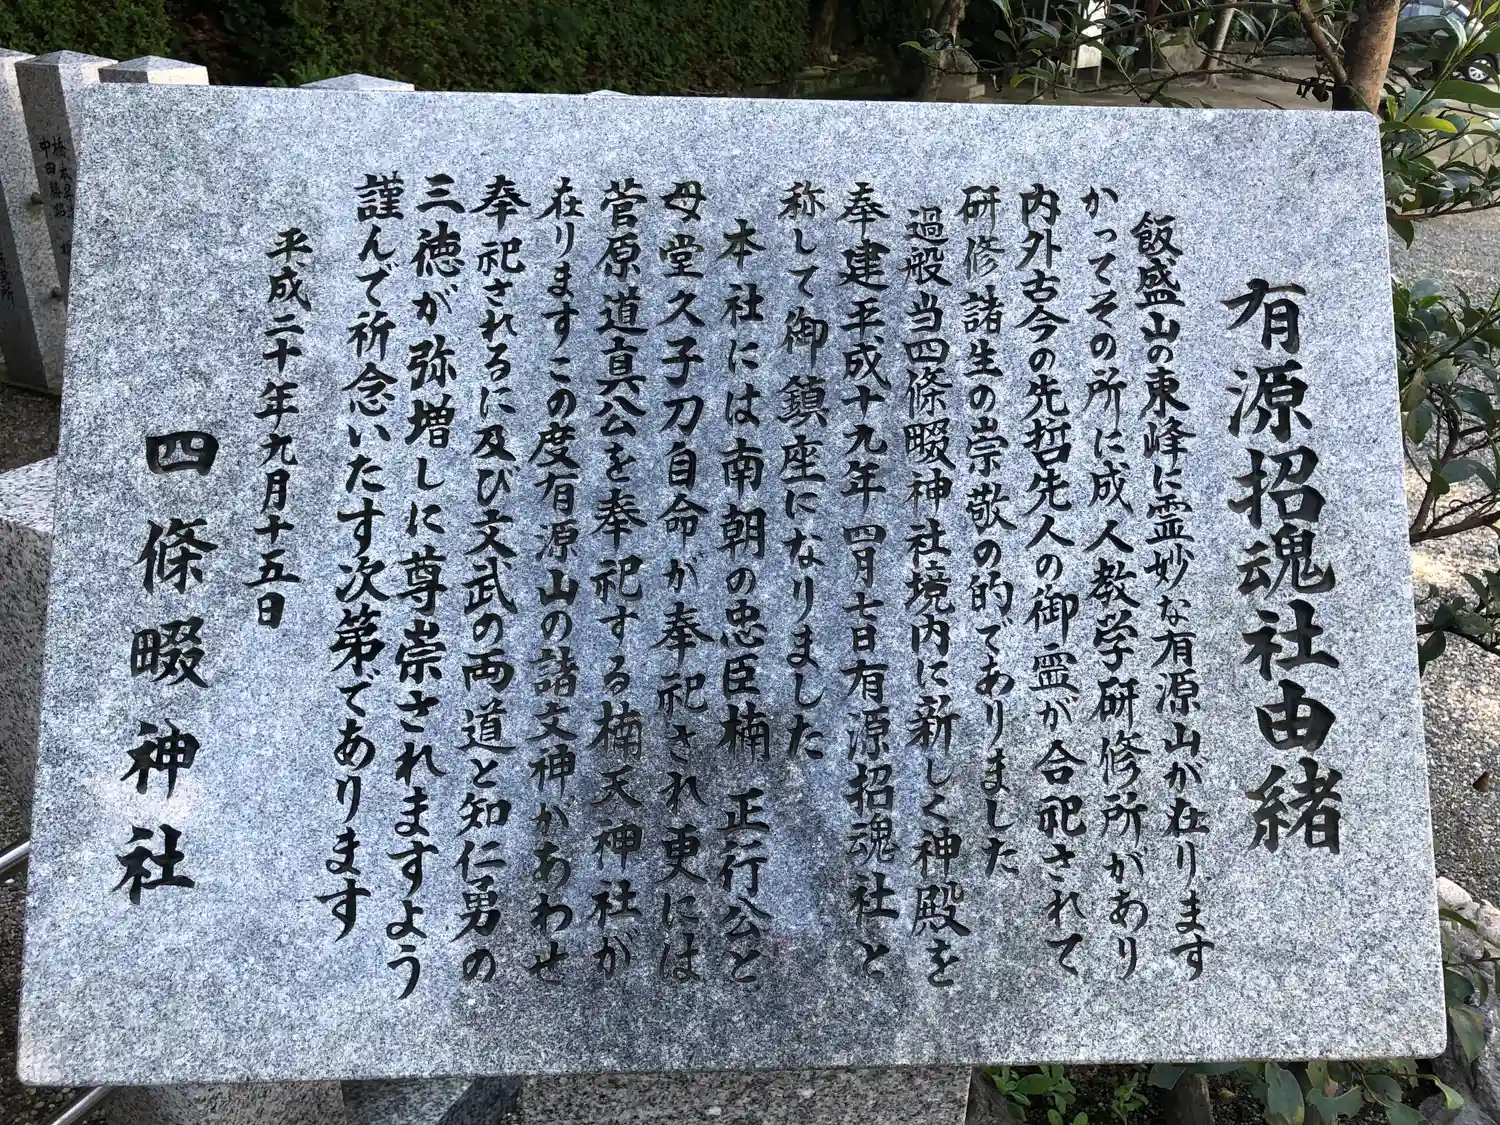 有源招魂社由緒
飯盛山の東峰に霊妙な有源山が在ります
かってその所に成人教学研修所があり
内外古今の先哲先人の御霊が合祀されて
研修諸生の崇敬の的でありました
過般当四條畷神社境内に新しく神殿を
奉建平成十九年四月七日有源招魂社と
称して御鎮座になりました
本社には南朝の忠臣楠正行公と
母堂久子刀自命が奉祀され更には
菅原道真公を奉祀する楠天神社が
在りますこの度有源山の諸文神があわせ
奉祀されるに及び文武の両道と知仁勇の
三徳が弥増しに尊崇されますよう
謹んで祈念いたす次第であります
平成二十年九月十五日
四條畷神社